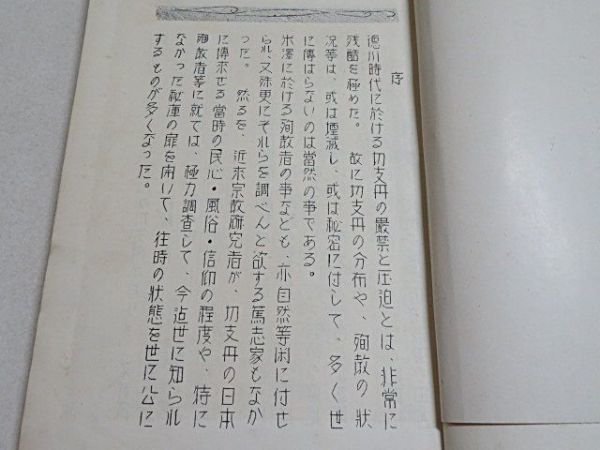 序
徳川時代に於ける切支丹の嚴禁と圧迫とは、非常に
残酷を極めた。故に切支丹の分布や、殉敎の狀
況等は、或は堙滅し、或は秘密に付して、多く世
に傳はらないのは当然の事である。
米澤に於ける殉敎者の事なども、亦自然等閑に付せ
られ、又殊更にそれらを調べんと欲する篤志家もなか
った。然るを、近来宗敎硏究者が、切支丹の日本
に傳来せる当時の民心・風俗・信仰の程度や、特に
殉敎者等に就ては、極力調査して、今迄世に知られ
なかった秘庫の扉を開いて、往時の狀態を世に公に
するものが多くなった。